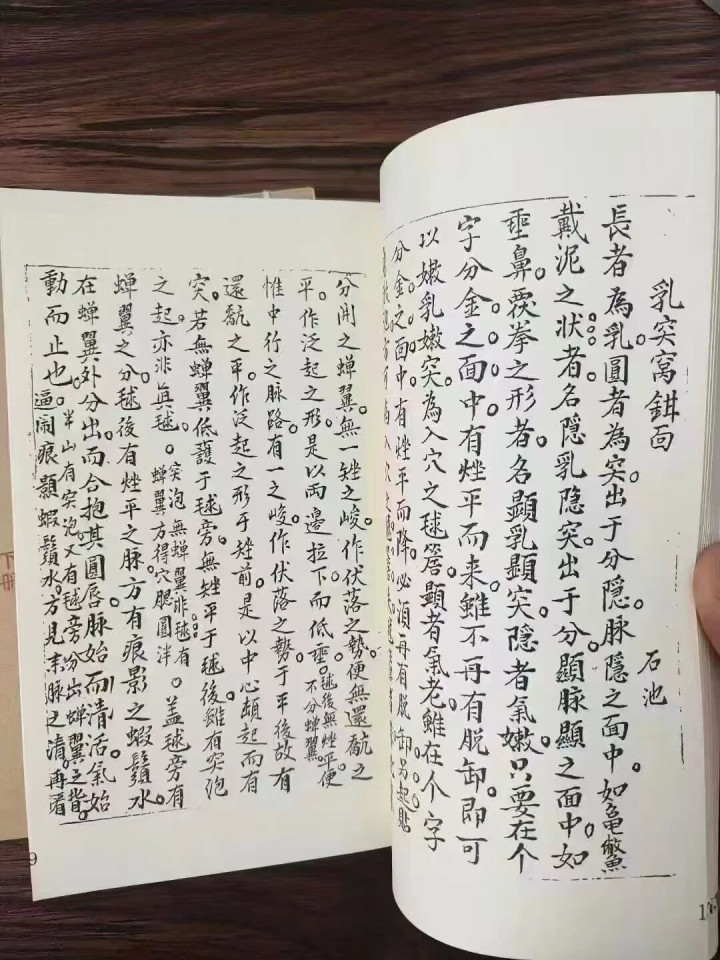 乳突窩鉗面
石池
長者為乳圓者為突出于分隱脉隱之面中如龜鱉
戴泥之狀者名隱乳隱突出于分顯脉顯之面中如
垂鼻覆拳之形者名顯乳顯突隱者氣嫩只要在个
字分金之面中有㘸平而来雖不再有脱卸即可
以嫩乳嫩突為入穴之毬簷顯者氣老雖在个字
分金之面中有㘸平而降必須再有脱卸另起貼
分開之蟬翼無一㘸之峻作伏落之勢便無還㼜之
平作泛起之形是以兩邊拉下而低垂毬後無㘸平便
不分蟬翼
惟中行之脉路有一之峻作伏落之勢于平後故有
還㼜之平作泛起之形于㘸前是以中心頔起而有
突若無蟬翼低護于毬旁無㘸平于毬後雖有突泡
之起亦非真毬突泡無蟬翼非毬有
蟬翼方得穴腮圓泮盖毬旁有
蟬翼之分毬後有㘸平之脉方有痕影之蝦鬚水
在蟬翼外分出而合抱其圓唇脉始而清活氣始
動而止也半山有突泡又有毬旁分出蟬翼之背
逼鬧痕顯蝦鬚水方見来脉之清再看
9